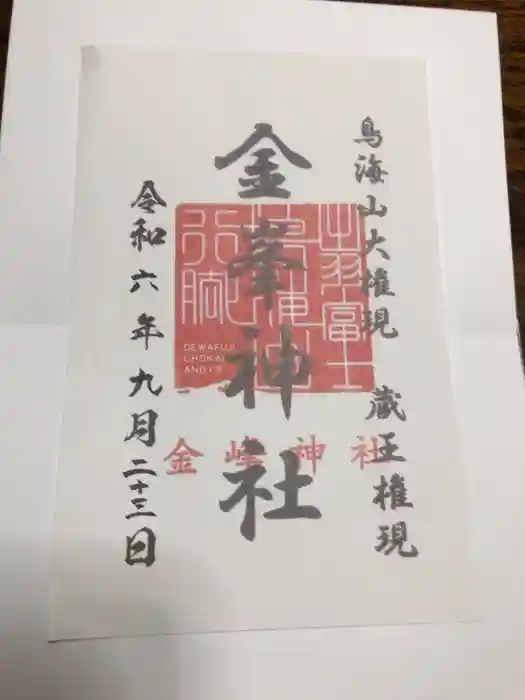 鳥海山大権現 蔵王権現
金峯神社
令和六年九月二十三日
出羽富士
鳥海山
行脚
DEWAFUJI
CHOKAI
ANGYA
金峰神社